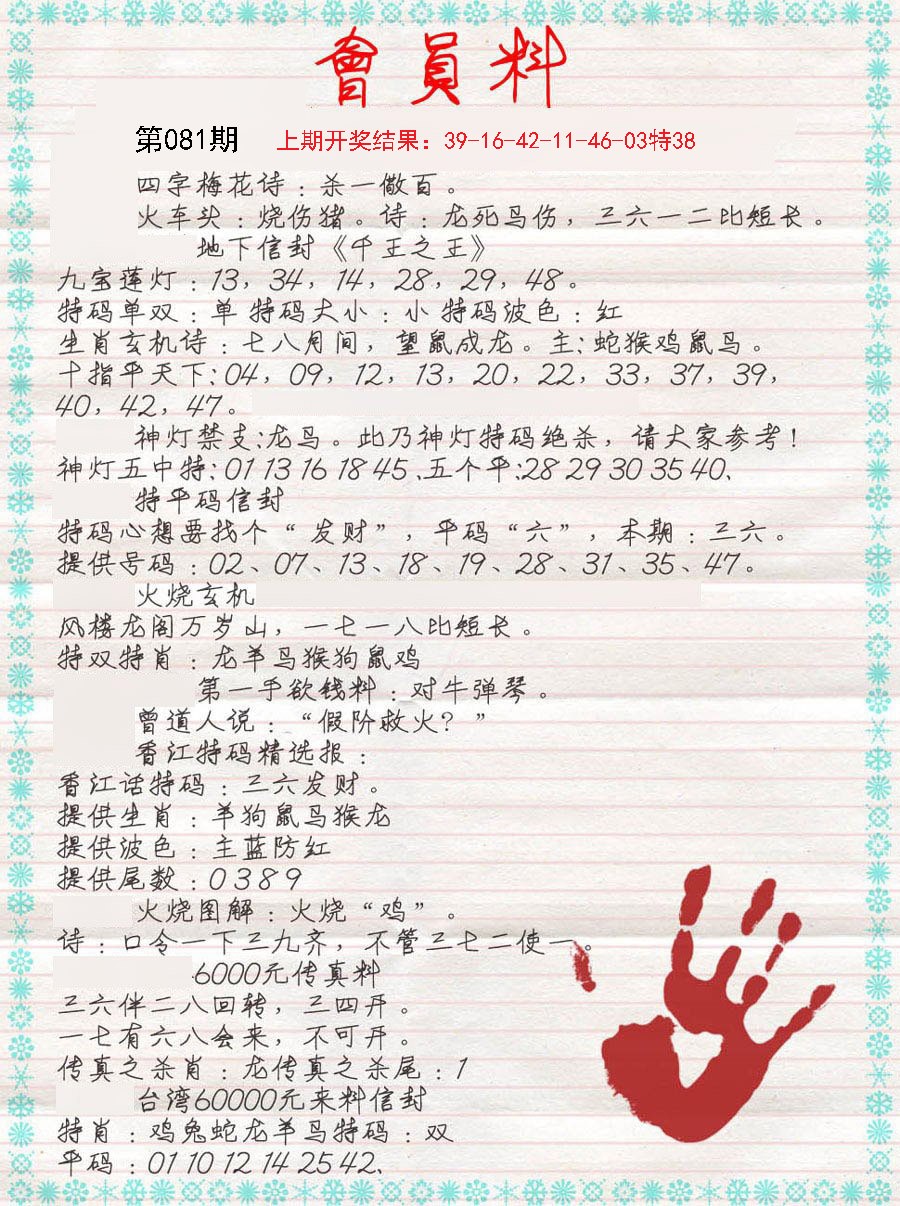 會員料
第081期 上期开奖结果：39-16-42-11-46-03特38
四字梅花诗：杀一儆百。
火车头：烧伤猪。诗：龙死鸟伤，三六一二比短长。
地下信封《千王之王》
九宝莲灯：13，34，14，28，29，48。
特码单双：单 特码大小：小 特码波色：红
生肖玄机诗：七八月间，望鼠成龙。主：蛇猴鸡鼠马。
十指平天下：04，09，12，13，20，22，33，37，39，
40，42，47。
神灯禁支:龙马。此乃神灯特码绝杀，请大家参考！
神灯五中特：01 13 16 18 45 、五个平：28 29 30 35 40、
特平码信封
特码心想要找个“发财”，平码“六”，本期：三六。
提供号码：02、07、13、18、19、28、31、35、47。
火烧玄机
风楼龙阁万岁山，一七一八比短长。
特双特肖：龙羊马猴狗鼠鸡
第一手欲钱料：对牛弹琴。
曾道人说：“假阶救火？”
香江特码精选报：
香江话特码：三六发财。
提供生肖：羊狗鼠马猴龙
提供波色：主蓝防红
提供尾数：0 3 8 9
火烧图解：火烧“鸡”。
诗：口令一下三九齐，不管三七二使一。
6000元传真料
三六伴二八回转，三四开。
一七有六八会来，不可开。
传真之杀肖：龙传真之杀尾：1
台湾60000元来料信封
特肖：鸡兔蛇龙羊马特码：双
平码：01 10 12 14 25 42、